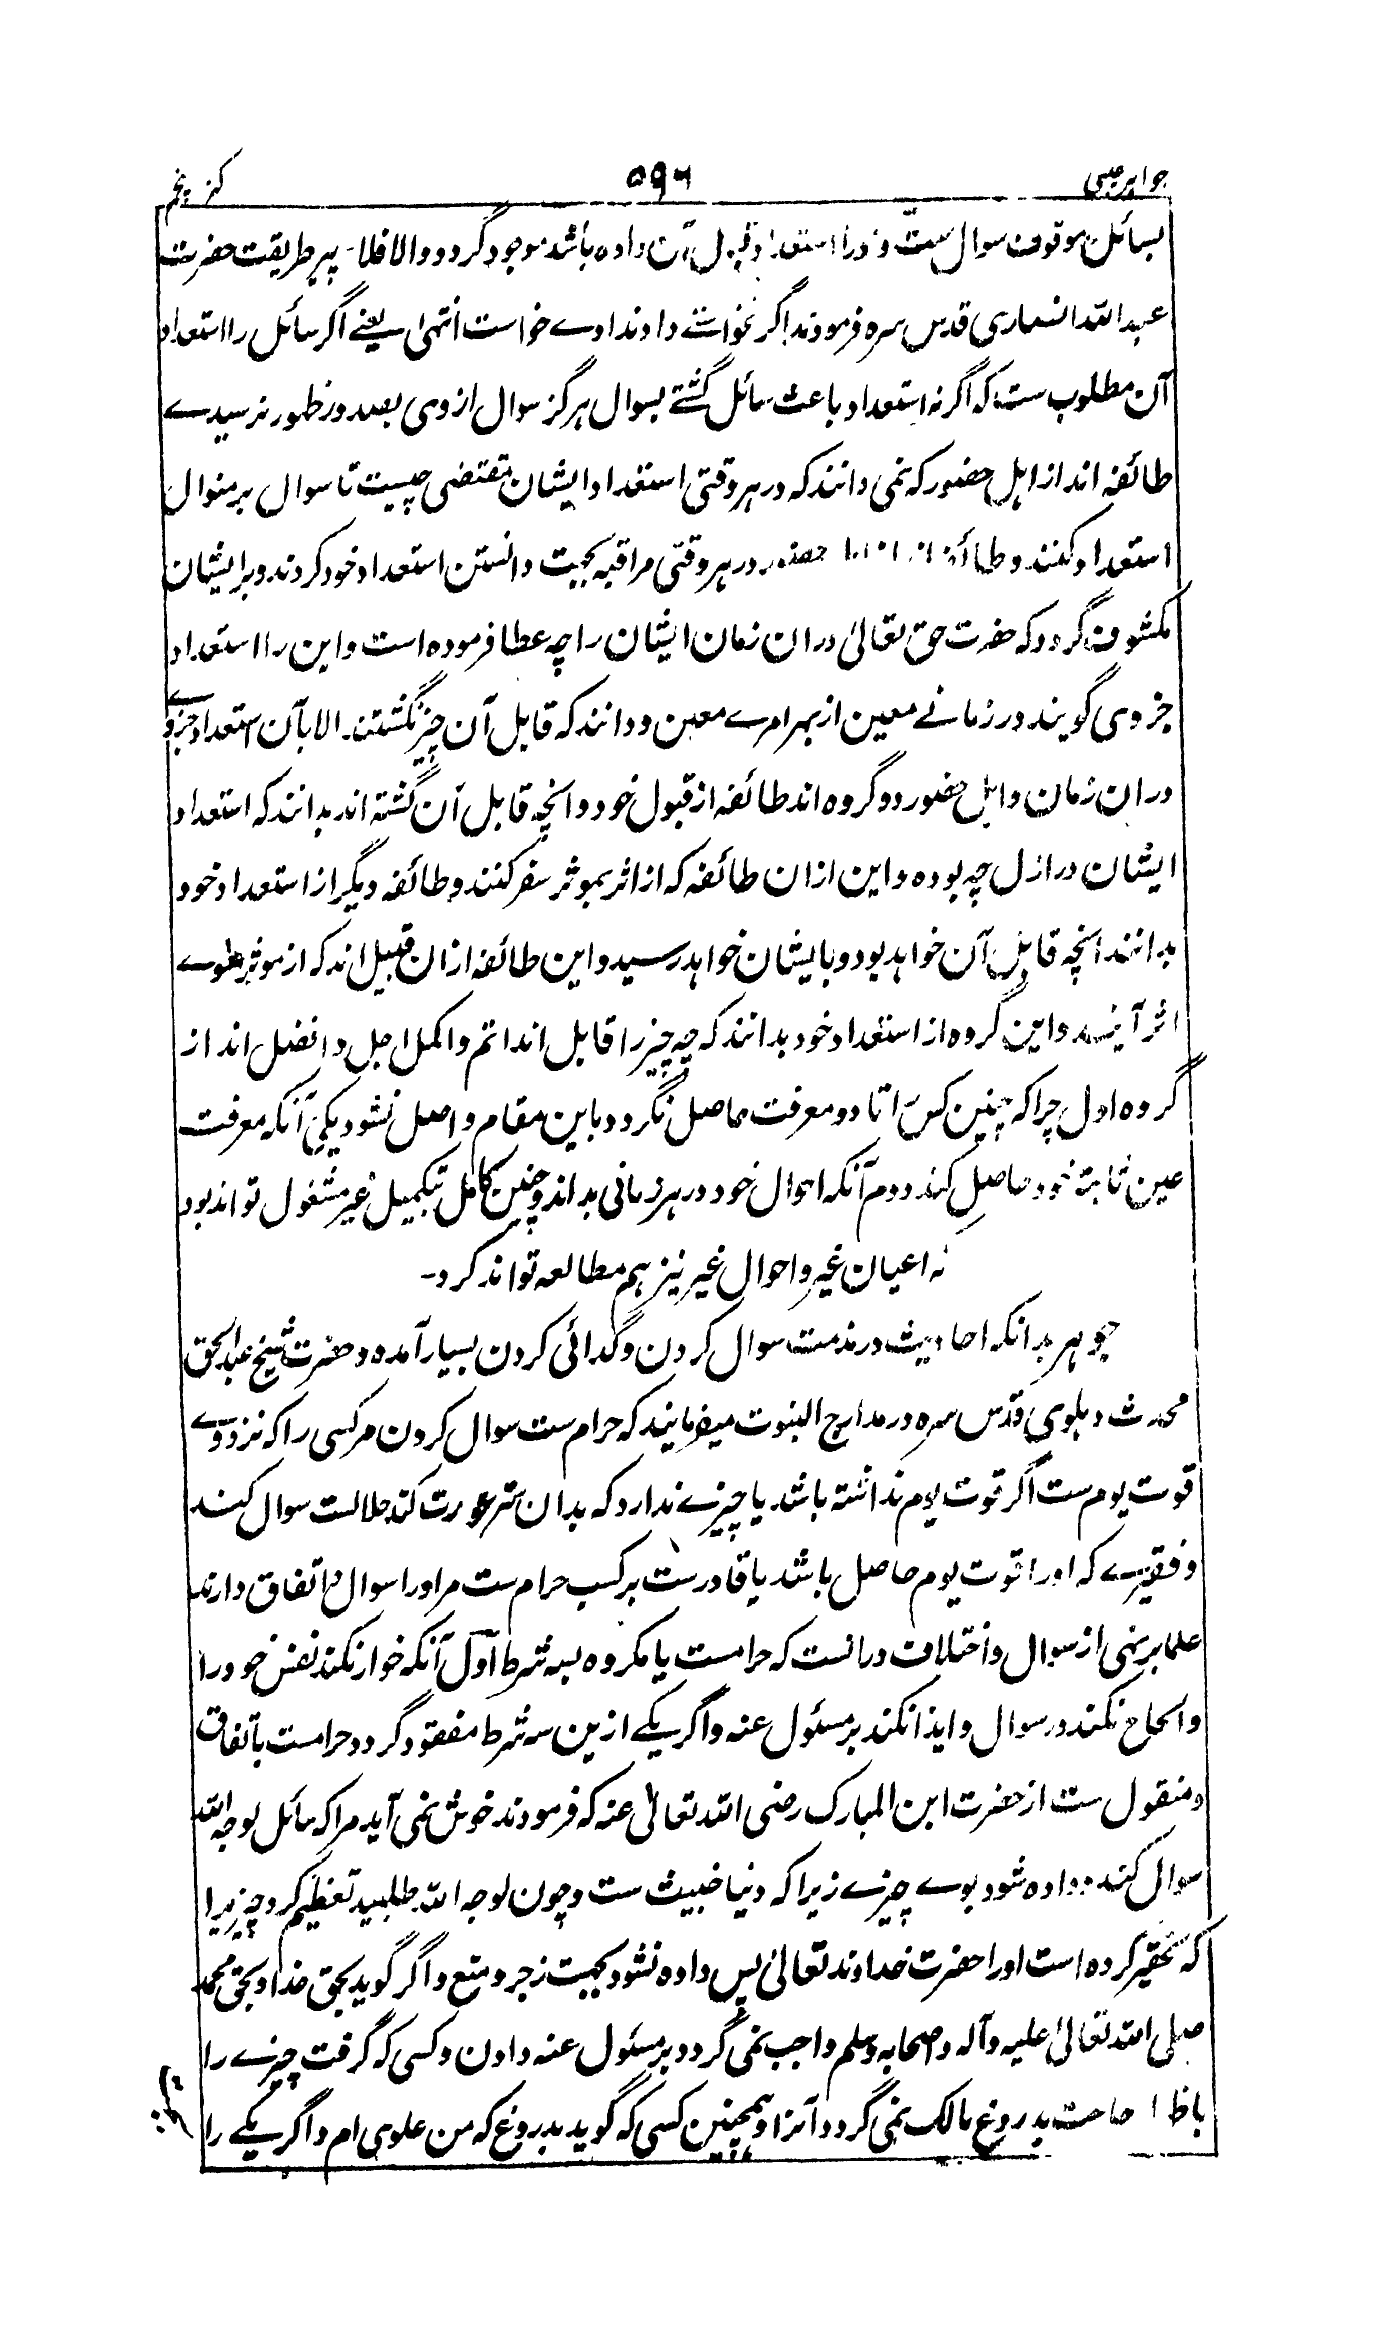 جواهر غیبی ۵۹۶ کنز پنجم
بسائل موقوف سوال ست و درا استعداد قبول آن داده باشد موجود گردد و والا فلا - پیر طریقت حضرت
عبداللّه انصاری قدس سره فرمودند اگر نخواستے داد ندادے خواست انتهی یعنے اگر سائل را استعداد
آن مطلوب ست که اگر نه استعداد باعث سائل گشتے بسوال هرگز سوال ازوی بصدور ظهور نرسیدے
طائفه اند از اهل حضور که نمی دانند که در هر وقتی استعداد ایشان مقتضی چیست تا سوال بر منوال
استعداد کنند و حضور در هر وقتی مراقبه بجهت دانستن استعداد خود کردند و بر ایشان
مکشوف گردد که حضرت حق تعالیٰ دران زمان ایشان را چه عطا فرموده است و این را استعداد
جزوی گویند در زمانے معین از بهر امرے معین و دانند که قابل آن چیز نگشتند الا بآن استعداد جزوے
دران زمان و اهل حضور دو گروه اند طائفه از قبول خود و انچه قابل آن گشته اند بدانند که استعداد
ایشان در ازل چه بوده و این ازان طائفه که از اثر بموثر سفر کنند و طائفه دیگر از استعداد خود
بدانند انچه قابل آن خواهد بود و بایشان خواهد رسید و این طائفه ازان قبیل اند که از موثر بطوے
اثر آیند و این گروه از استعداد خود بدانند که چه چیز را قابل اند اتم و اکمل اجل و افضل اند از
گروه اول چرا که چنین کس را تا دو معرفت حاصل نگردد باین مقام واصل نشود یکی آنکه معرفت
عین ثابته خود حاصل کند دوم آنکه احوال خود در هر زمانی بداند و چنین کامل تبکمیل غیر مشغول تواند بود
نه اعیان غیر و احوال غیر نیز هم مطالعه تواند کرد -
جوهر بدانکه احادیث در مذمت سوال کردن و گدائی کردن بسیار آمده و حضرت شیخ عبدالحق
محدث دهلوی قدس سره در مدارج النبوت میفرمایند که حرام ست سوال کردن مر کسی را که نزد وے
قوت یوم ست اگر قوت یوم نداشته باشد یا چیزے ندارد که بدان ستر عورت کند حلالست سوال کند
و فقیرے که اورا قوت یوم حاصل باشد یا قادرست بر کسب حرام ست مر اورا سوال و اتفاق دارند
علما بر نهی از سوال و اختلاف درانست که حرامست یا مکروه بسه شرط اول آنکه خوار نکند نفس خود را
و الحاح نکند در سوال و ایذا نکند بر مسئول عنه و اگر یکے ازین سه شرط مفقود گردد حرامست باتفاق
و منقول ست از حضرت ابن المبارک رضی اللّه تعالیٰ عنه که فرمودند خوش نمی آید مرا که سائل لوجه اللّه
سوال کند و داده شود بوے چیزے زیرا که دنیا خبیث ست و چون لوجه اللّه طلبید تعظیم کرد چیزیرا
که تحقیر کرده است اورا حضرت خداوند تعالیٰ پس داده نشود بجهت زجر و منع و اگر گوید بحق خدا و بحق محمد
صلی اللّه تعالیٰ علیه و آله و اصحابه وسلم واجب نمی گردد بر مسئول عنه دادن و کسی که گرفت چیزے را
حاجت بدروغ مالک نمی گردد آنرا و همچنین کسی که گوید بدروغ که من علوی ام و اگر یکے را